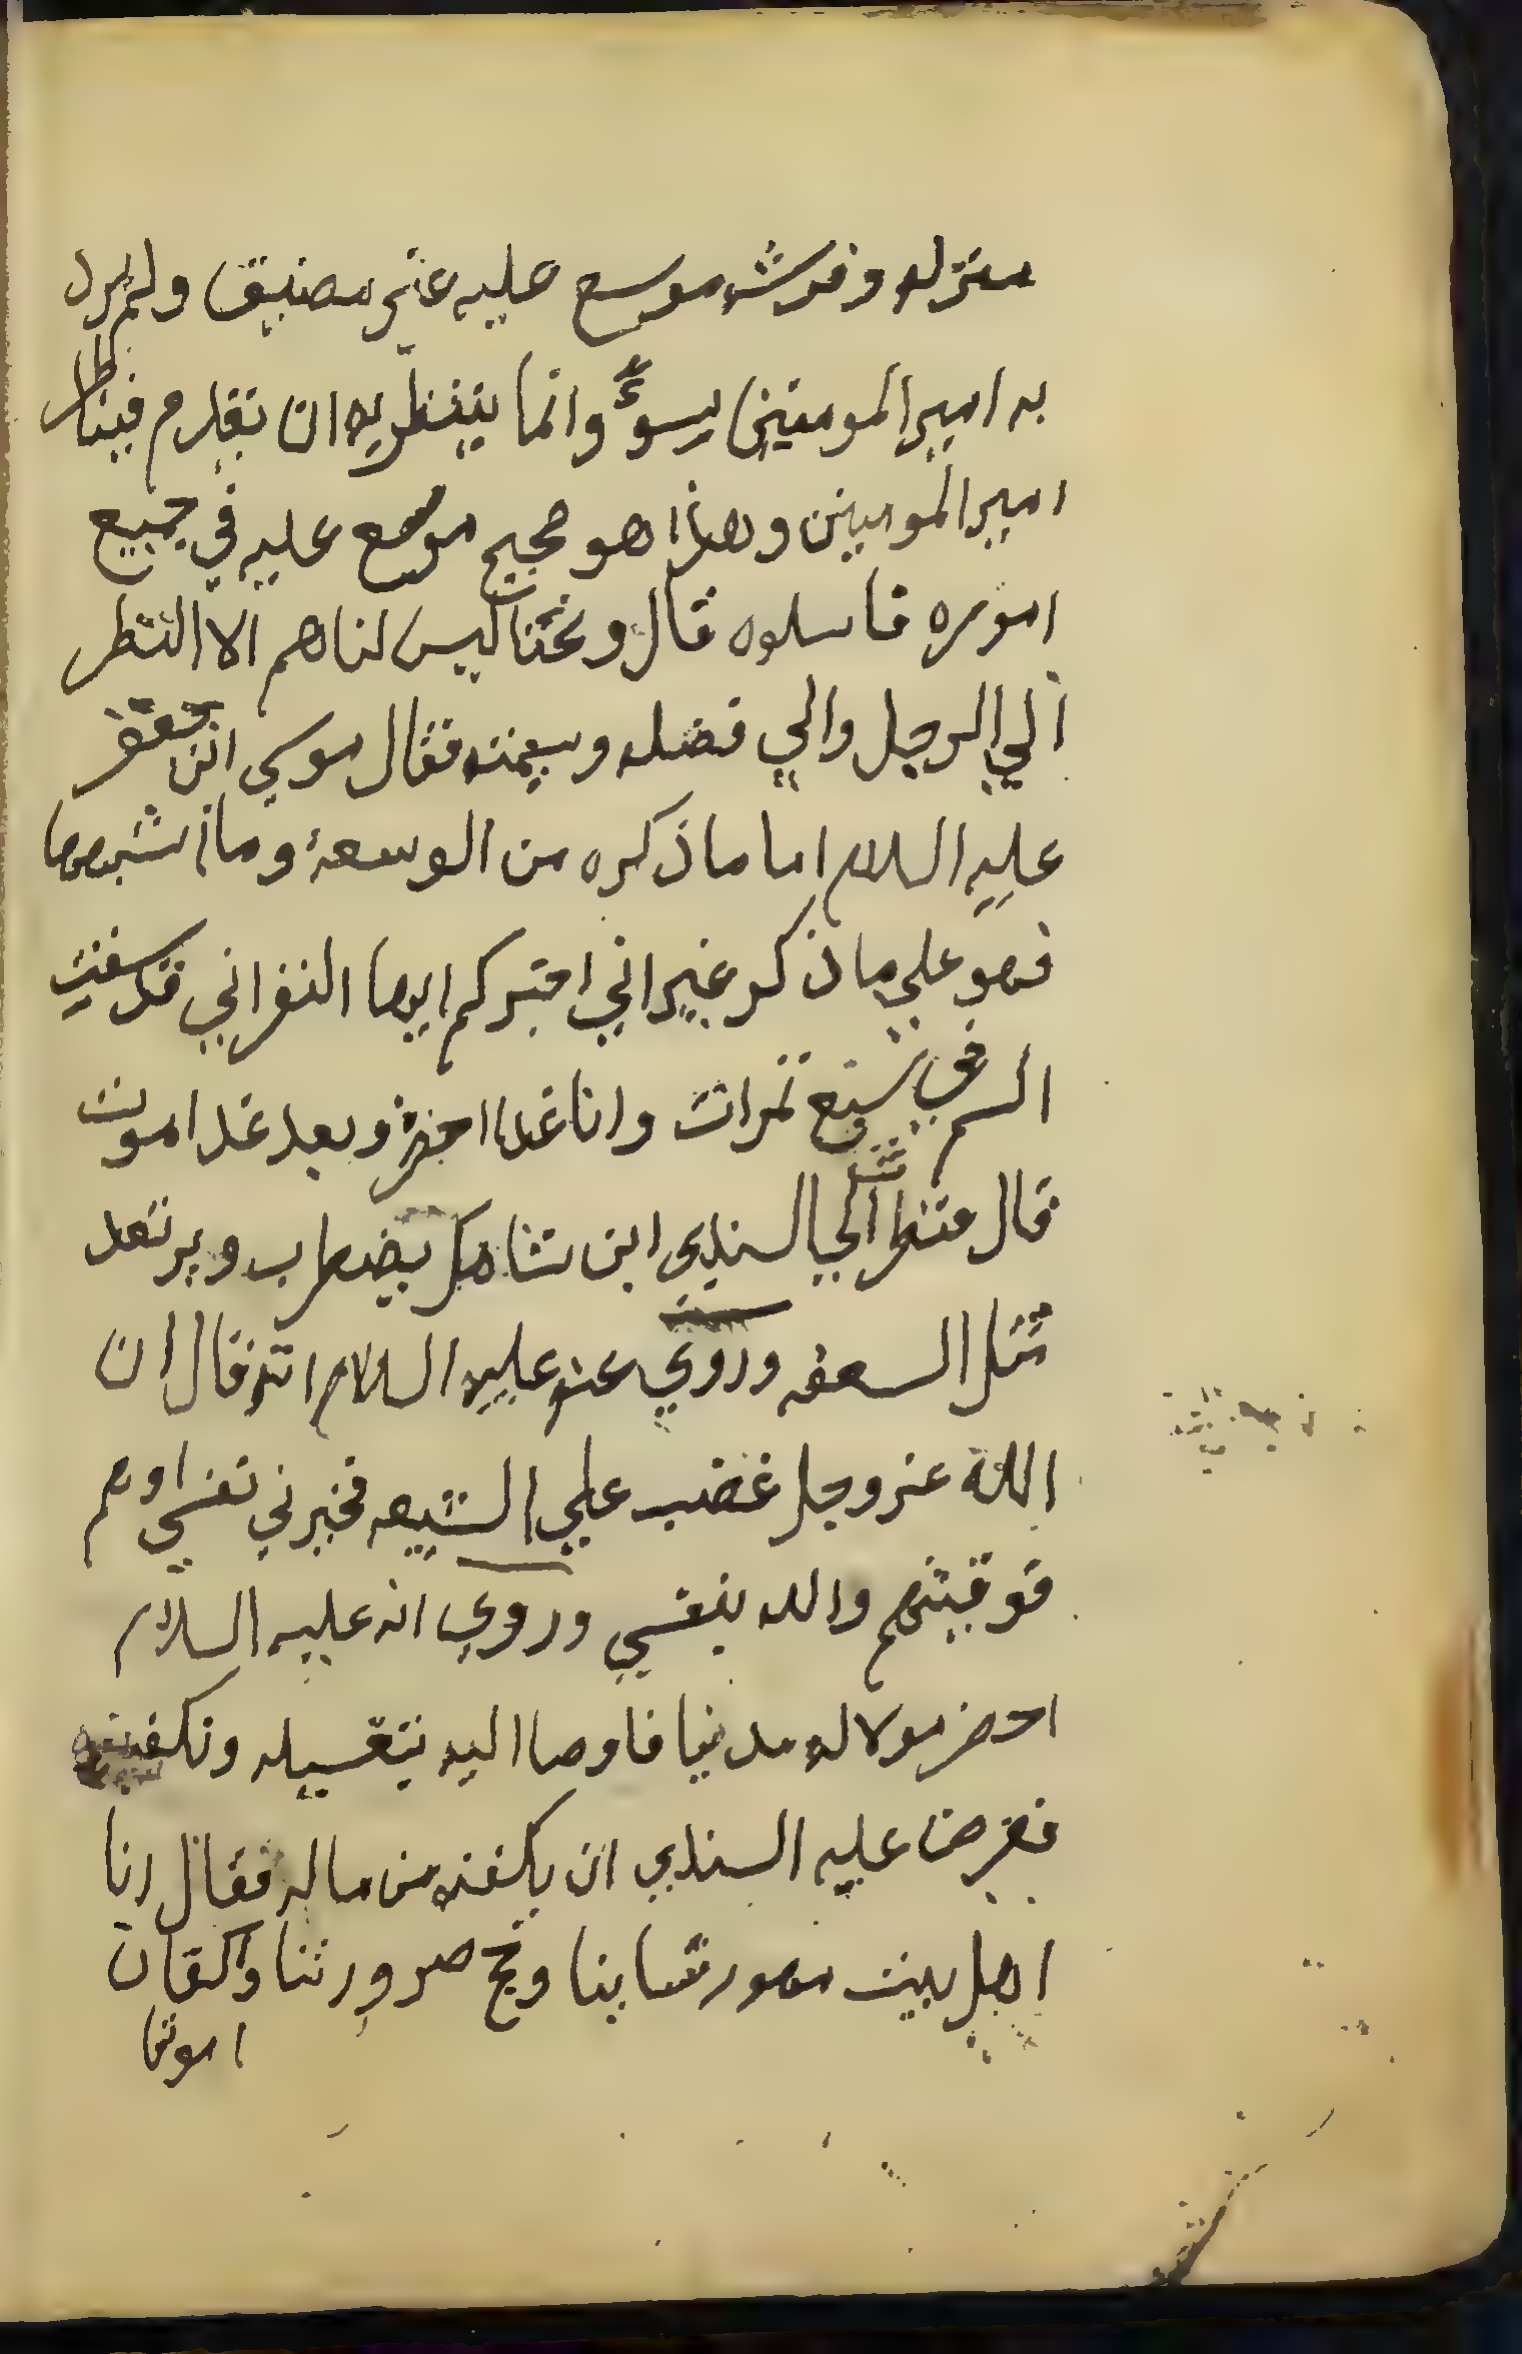 منزله وفرشه موسع عليه غير مضيق ولم يرد
به امير المومنين بسوءٍ وانما ينتظر به ان يقدم فيناظر
امير المومنين وهذا هو صحيح موسع عليه في جميع
اموره فاسلوه قال ونحن ليس لنا هم الا النظر
الي الرجل والي فضله وسمته فقال موسي ابن جعفر
عليه السلام اما ما ذكره من الوسعة وما اشبهها
فهو علي ما ذكر غير اني اخبركم ايها النفر اني قد سقيت
السم في سبع تمرات وانا غدا اخضر وبعد غد اموت
قال فنظرت الي السندي ابن شاهك يضطرب ويرتعد
مثل السعفه وروي عنه عليه السلام انه قال ان
الله عز وجل غضب علي الشيعه فخيرني نفسي اوهم
فوقيتهم والله بنفسي وروي انه عليه السلام
احضر مولا له مدنيا فاوصا اليه بتغسيله وتكفينه
فعرض عليه السندي ان يكفنه من ماله فقال انا
اهل بيت مهور نسابنا وحج صرورتنا واكفان
اموتنا